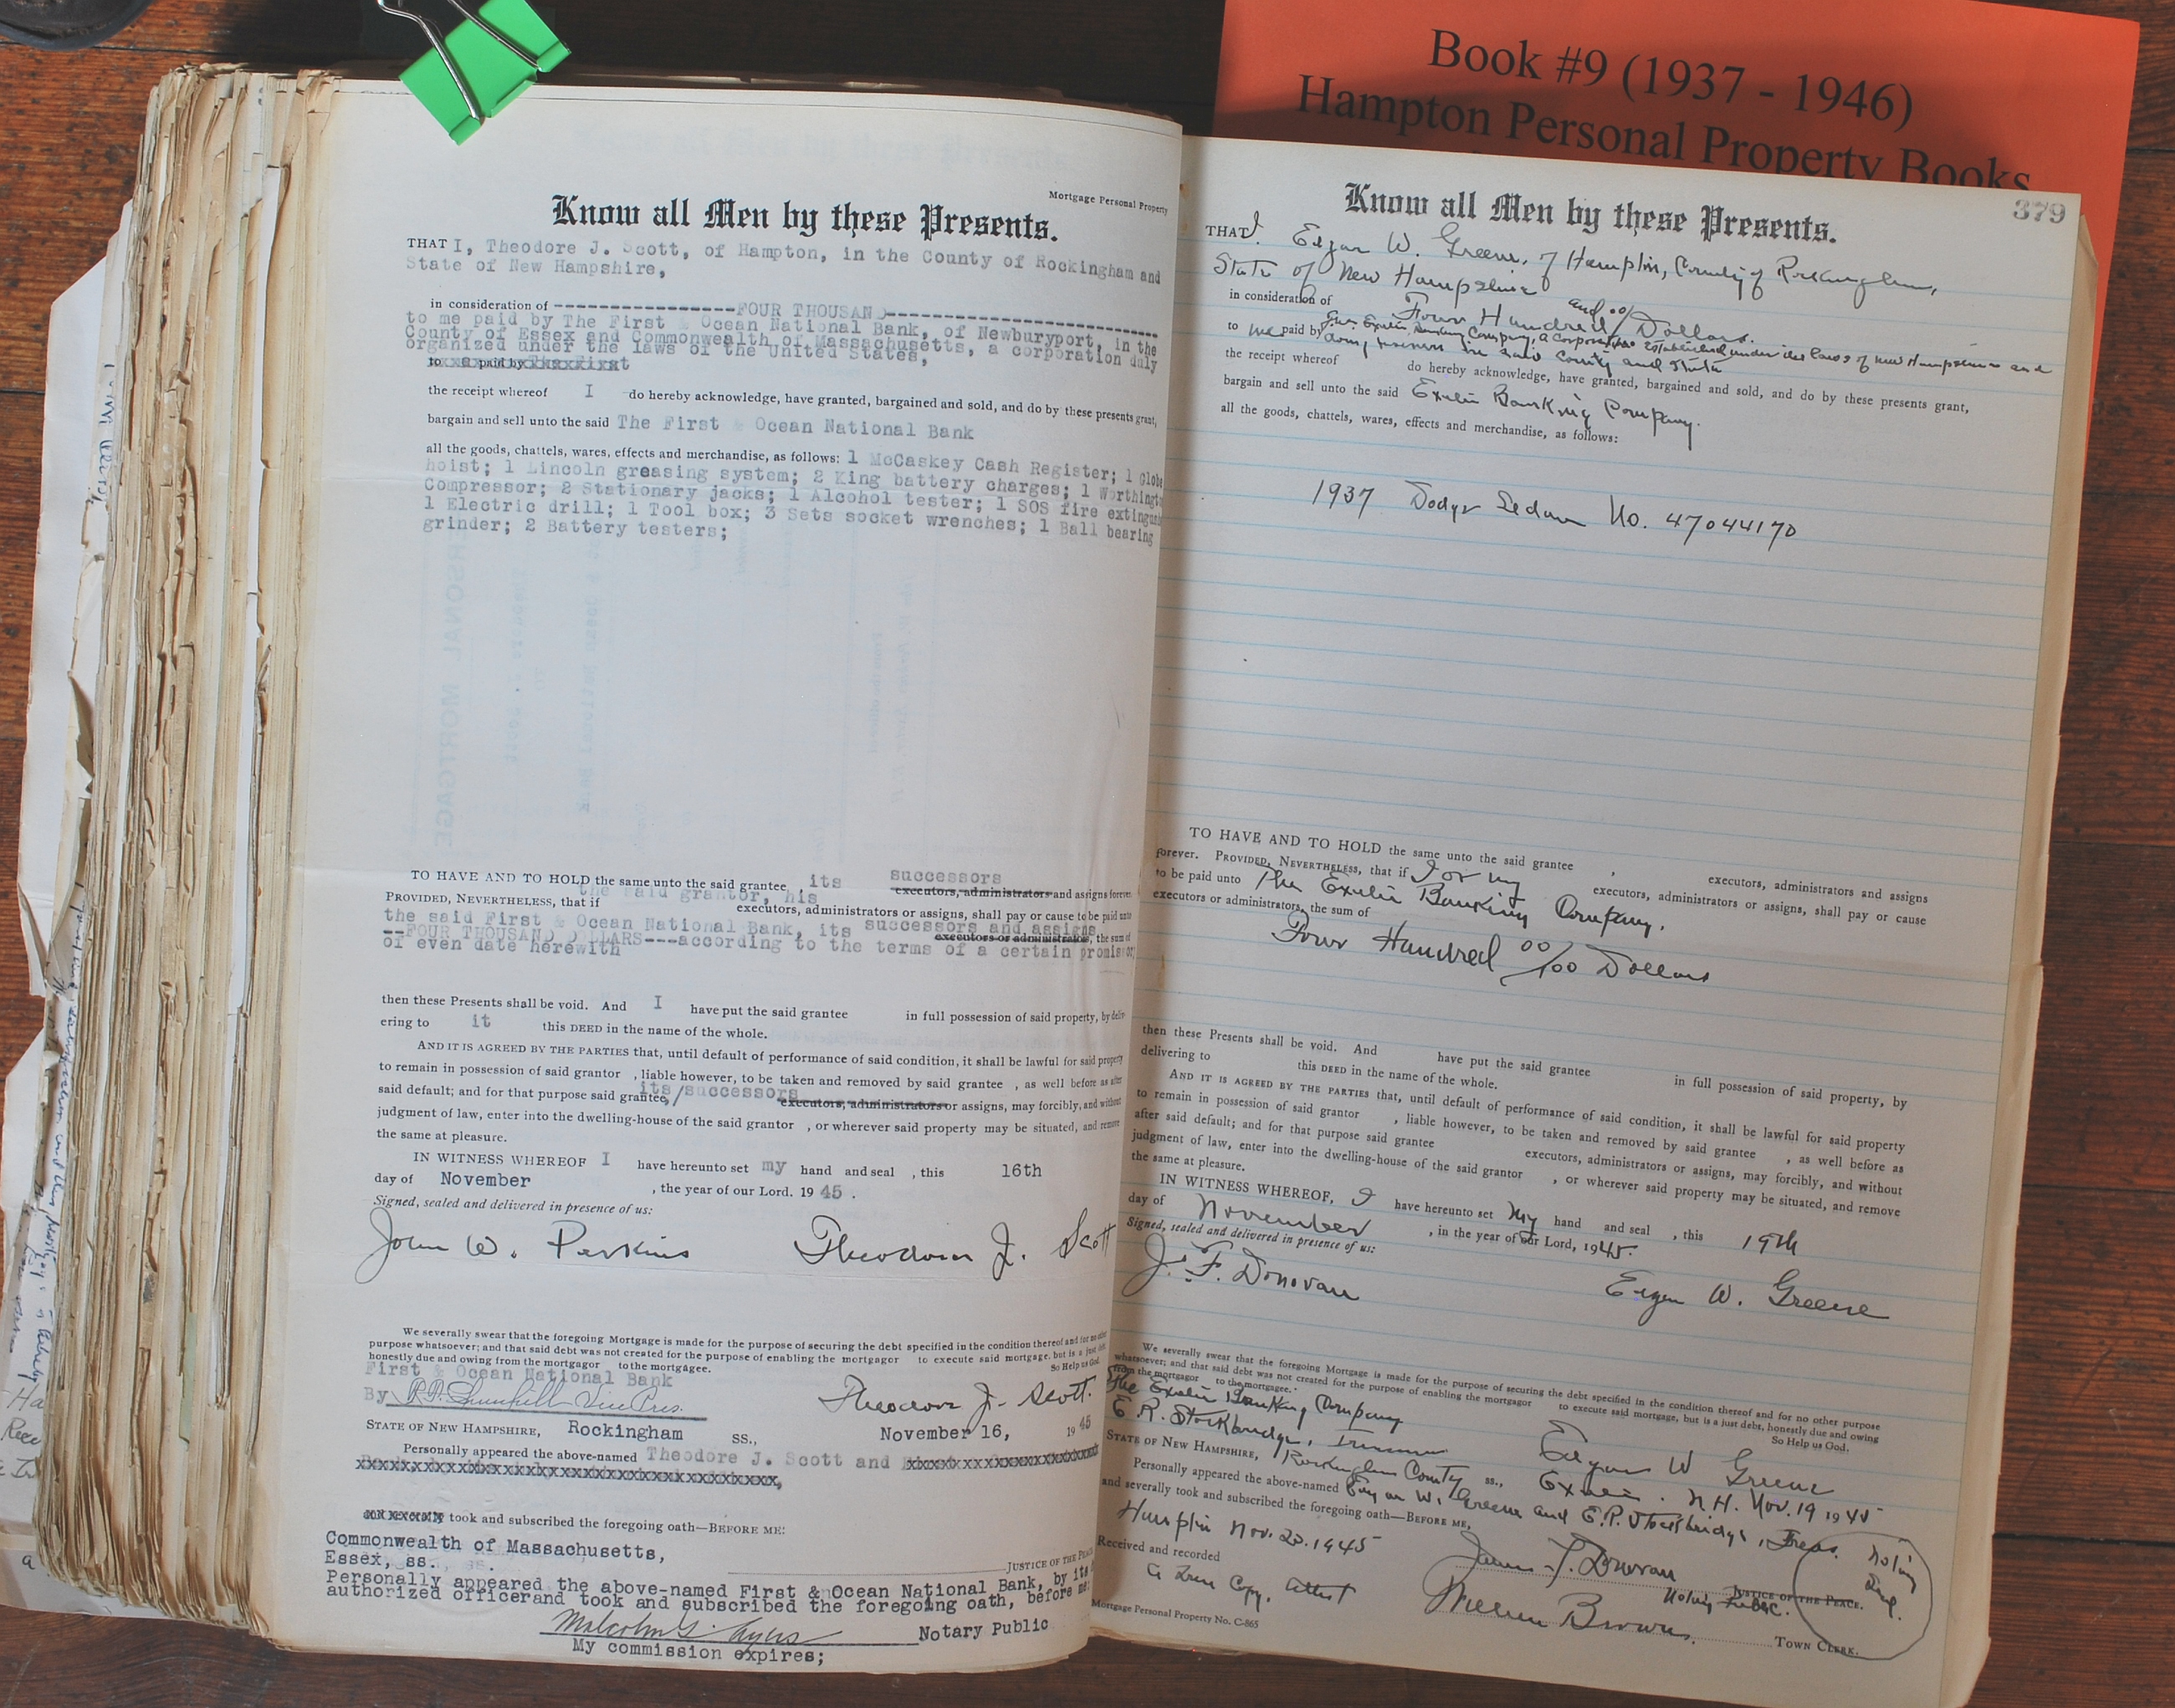 Book #9 (1937 - 1946)
Hampton Personal Property Books
Mortgage Personal Property
Know all Men by these Presents.
THAT I, Theodore J. Scott, of Hampton, in the County of Rockingham and
State of New Hampshire,
in consideration of ------------------FOUR THOUSAND---------------------------
to me paid by The First & Ocean National Bank, of Newburyport, in the
County of Essex and Commonwealth of Massachusetts, a corporation duly
organized under the laws of the United States,
to paid by
the receipt whereof I do hereby acknowledge, have granted, bargained and sold, and do by these presents grant,
bargain and sell unto the said The First & Ocean National Bank
all the goods, chattels, wares, effects and merchandise, as follows: 1 McCaskey Cash Register; 1 Globe
hoist; 1 Lincoln greasing system; 2 King battery charges; 1 Worthingto
Compressor; 2 Stationary jacks; 1 Alcohol tester; 1 SOS fire extinguis
1 Electric drill; 1 Tool box; 3 Sets socket wrenches; 1 Ball bearing
grinder; 2 Battery testers;
TO HAVE AND TO HOLD the same unto the said grantee , its successors
executors, administrators and assigns forever.
PROVIDED, NEVERTHELESS, that if the said grantor, his
executors, administrators or assigns, shall pay or cause to be paid unto
the said First & Ocean National Bank, its successors and assigns
executors or administrators, the sum of
--FOUR THOUSAND DOLLARS----according to the terms of a certain promissor
of even date herewith
then these Presents shall be void. And I have put the said grantee in full possession of said property, by deliv-
ering to it this DEED in the name of the whole.
AND IT IS AGREED BY THE PARTIES that, until default of performance of said condition, it shall be lawful for said property
to remain in possession of said grantor , liable however, to be taken and removed by said grantee , as well before as after
said default; and for that purpose said grantee, its/successors executors, administrators or assigns, may forcibly, and without
judgment of law, enter into the dwelling-house of the said grantor , or wherever said property may be situated, and remove
the same at pleasure.
IN WITNESS WHEREOF I have hereunto set my hand and seal , this 16th
day of November , the year of our Lord. 19 45 .
Signed, sealed and delivered in presence of us:
John W. Perkins Theodore J. Scott
We severally swear that the foregoing Mortgage is made for the purpose of securing the debt specified in the condition thereof and for no other
purpose whatsoever; and that said debt was not created for the purpose of enabling the mortgagor to execute said mortgage, but is a just debt
honestly due and owing from the mortgagor to the mortgagee. So Help us God.
First & Ocean National Bank
By Vice Pres. Theodore J. Scott.
STATE OF NEW HAMPSHIRE, Rockingham SS., November 16, 19 45
Personally appeared the above-named Theodore J. Scott and
took and subscribed the foregoing oath—BEFORE ME:
Commonwealth of Massachusetts,
Essex, ss. JUSTICE OF THE PEACE
Personally appeared the above-named First & Ocean National Bank, by its
authorized officerand took and subscribed the foregoing oath, before me:
Malcolm G. Ayers Notary Public
My commission expires;
379
Know all Men by these Presents.
THAT I, Edgar W. Greene, of Hampton, County of Rockingham,
State of New Hampshire
in consideration of Four Hundred and 00/ Dollars.
to me paid by The Exeter Banking Company, a corporation established under the laws of New Hampshire and
doing business in said County and State
the receipt whereof do hereby acknowledge, have granted, bargained and sold, and do by these presents grant,
bargain and sell unto the said Exeter Banking Company.
all the goods, chattels, wares, effects and merchandise, as follows:
1937 Dodge Sedan No. 47044170
TO HAVE AND TO HOLD the same unto the said grantee , executors, administrators and assigns
forever. PROVIDED, NEVERTHELESS, that if I or my executors, administrators or assigns, shall pay or cause
to be paid unto The Exeter Banking Company.
executors or administrators, the sum of
Four Hundred 00/100 Dollars
then these Presents shall be void. And have put the said grantee in full possession of said property, by
delivering to this DEED in the name of the whole.
AND IT IS AGREED BY THE PARTIES that, until default of performance of said condition, it shall be lawful for said property
to remain in possession of said grantor , liable however, to be taken and removed by said grantee , as well before as
after said default; and for that purpose said grantee executors, administrators or assigns, may forcibly, and without
judgment of law, enter into the dwelling-house of the said grantor , or wherever said property may be situated, and remove
the same at pleasure.
IN WITNESS WHEREOF, I have hereunto set my hand and seal , this 19th
day of November , in the year of our Lord, 1945.
Signed, sealed and delivered in presence of us:
J. F. Donovan Edgar W. Greene
We severally swear that the foregoing Mortgage is made for the purpose of securing the debt specified in the condition thereof and for no other purpose
whatsoever; and that said debt was not created for the purpose of enabling the mortgagor to execute said mortgage, but is a just debt, honestly due and owing
from the mortgagor to the mortgagee. So Help us God.
The Exeter Banking Company
E. R. Stockbridge, Treasurer Edgar W Greene
STATE OF NEW HAMPSHIRE, Rockingham County ss., Exeter. N.H. Nov. 19 1945
Personally appeared the above-named Edgar W. Greene and E.R. Stockbridge, Treas.
and severally took and subscribed the foregoing oath—BEFORE ME,
Hampton Nov. 23. 1945 James F. Donovan
Notary Public. JUSTICE OF THE PEACE.
Notary Seal.
Received and recorded
A True Copy, Attest William Brown. TOWN CLERK.
Mortgage Personal Property No. C-865